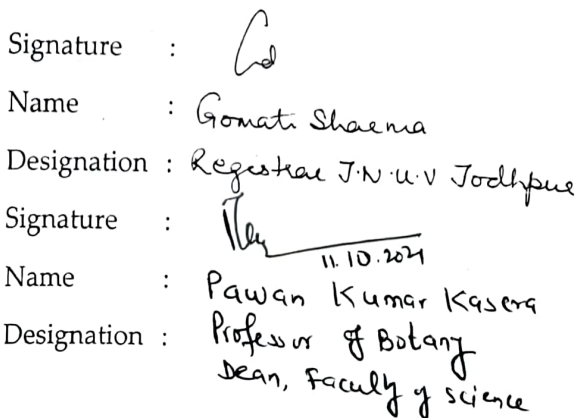 Signature :
Name : Gomati Sharma
Designation : Registrar J.N.U.V Jodhpur
Signature :
11.10.2021
Name : Pawan Kumar Kasera
Designation : Professor of Botany
Dean, Faculty of Science